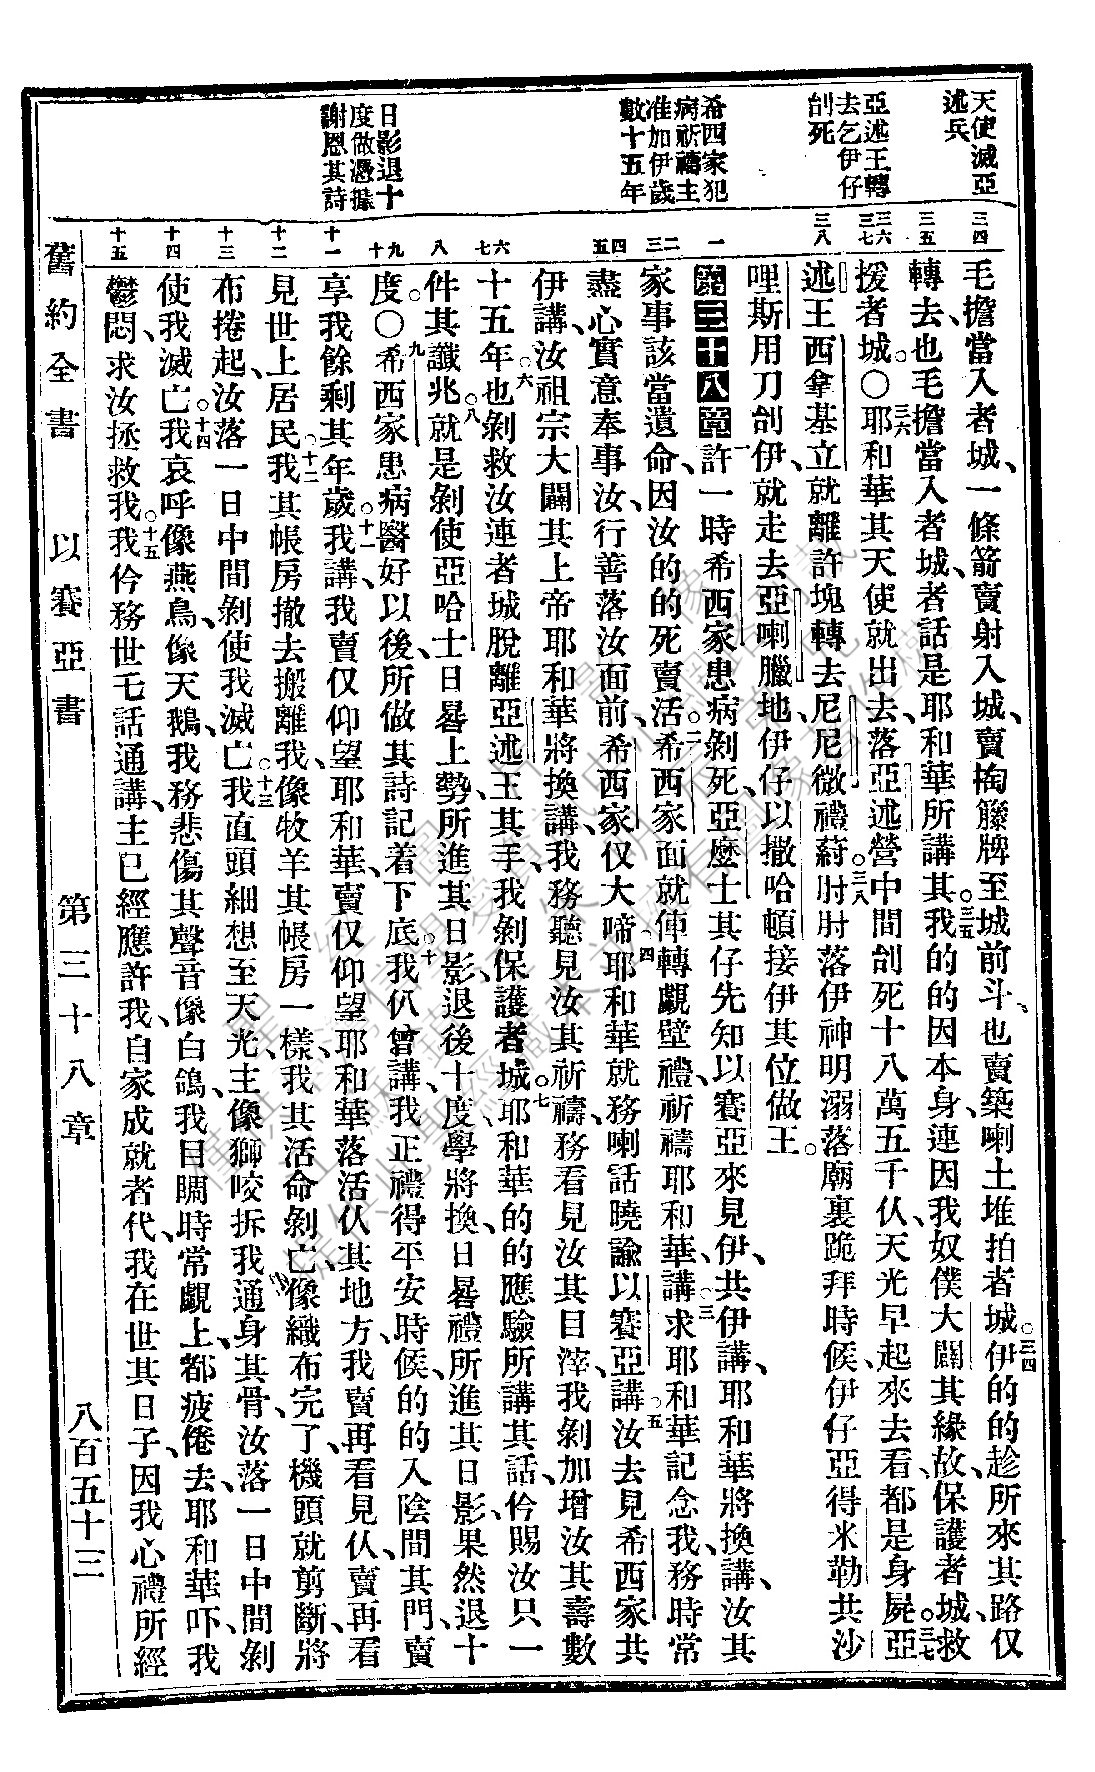 天使滅亞
述兵
亞述王轉
去乞伊仔
刣死
希西家犯
病祈禱主
准加伊歲
數十五年
日影退十
度做憑據
謝恩其詩
三四
三五
三六
三七
三八
一
二
三
四
五
六
七
八
九
十
十一
十二
十三
十四
十五
毛擔當入者城、一條箭、賣射入城、賣掏籐牌至城前斗、也賣築喇土堆拍者城。三四伊的的趁所來其路、仅
轉去、也毛擔當入者城、者話是耶和華所講其。三五我的的因本身、連因我奴僕大闢其緣故、保護者城、救
援者城。○三六耶和華其天使就出去、落亞述營中間刣死十八萬五千仈、天光早起來去看、都是身屍。三七亞
述王西拿基立就離許塊、轉去尼尼微禮、蒔。三八肘肘落伊神明溺落廟裏跪拜時候、伊仔亞得米勒共沙
哩斯用刀刣伊、就走去亞喇臘地、伊仔以撒哈頓接伊其位做王。
第三十八章一許一時希西家患病剝死、亞麼士其仔先知以賽亞來見伊、共伊講、耶和華將換講、汝其
家事該當遺命、因汝的的死賣活。二希西家面就俥轉覷壁禮、祈禱耶和華、講、三求耶和華記念我、務時常
盡心實意奉事汝、行善落汝面前、希西家仅大啼。四耶和華就務喇話曉諭以賽亞講、五汝去見希西家共
伊講、汝祖宗大闢其上帝耶和華將換講、我務聽見汝其祈禱、務看見汝其目滓、我剝加增汝其壽數
十五年。六也剝救汝連者城脫離亞述王其手、我剝保護者城。七耶和華的的應驗所講其話、仱賜汝只一
件其讖兆、就是剝使亞哈士日晷上勢、所進其日影、退後十度。八學將換、日晷禮所進其日影、果然退十
度。○九希西家患病醫好以後、所做其詩記着下底。十我仈曾講、我正禮得平安時候、的的入陰間其門、賣
享我餘剩其年歲。十一我講、我賣仅仰望耶和華、賣仅仰望耶和華落活仈其地方、我賣再看見仈、賣再看
見世上居民。十二我其帳房撤去搬離我、像牧羊其帳房一樣、我其活命剝亡、像織布完了、機頭就剪斷、將
布捲起、汝落一日中間剝使我滅亡。十三我直頭細想至天光、主像獅咬拆我通身其骨、汝落一日中間剝
使我滅亡。十四我哀呼像燕鳥、像天鵝、我務悲傷其聲音像白鴿、我目睭時常覷上、都疲倦去、耶和華吓、我
鬱悶、求汝拯救我。十五我仱務世乇話通講、主已經應許我、自家成就者代、我在世其日子、因我心禮所經
舊約全書　以賽亞書　第三十八章　八百五十三